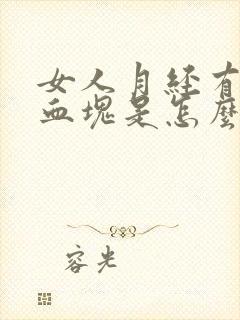 女人月经有
血块是怎麼
容光